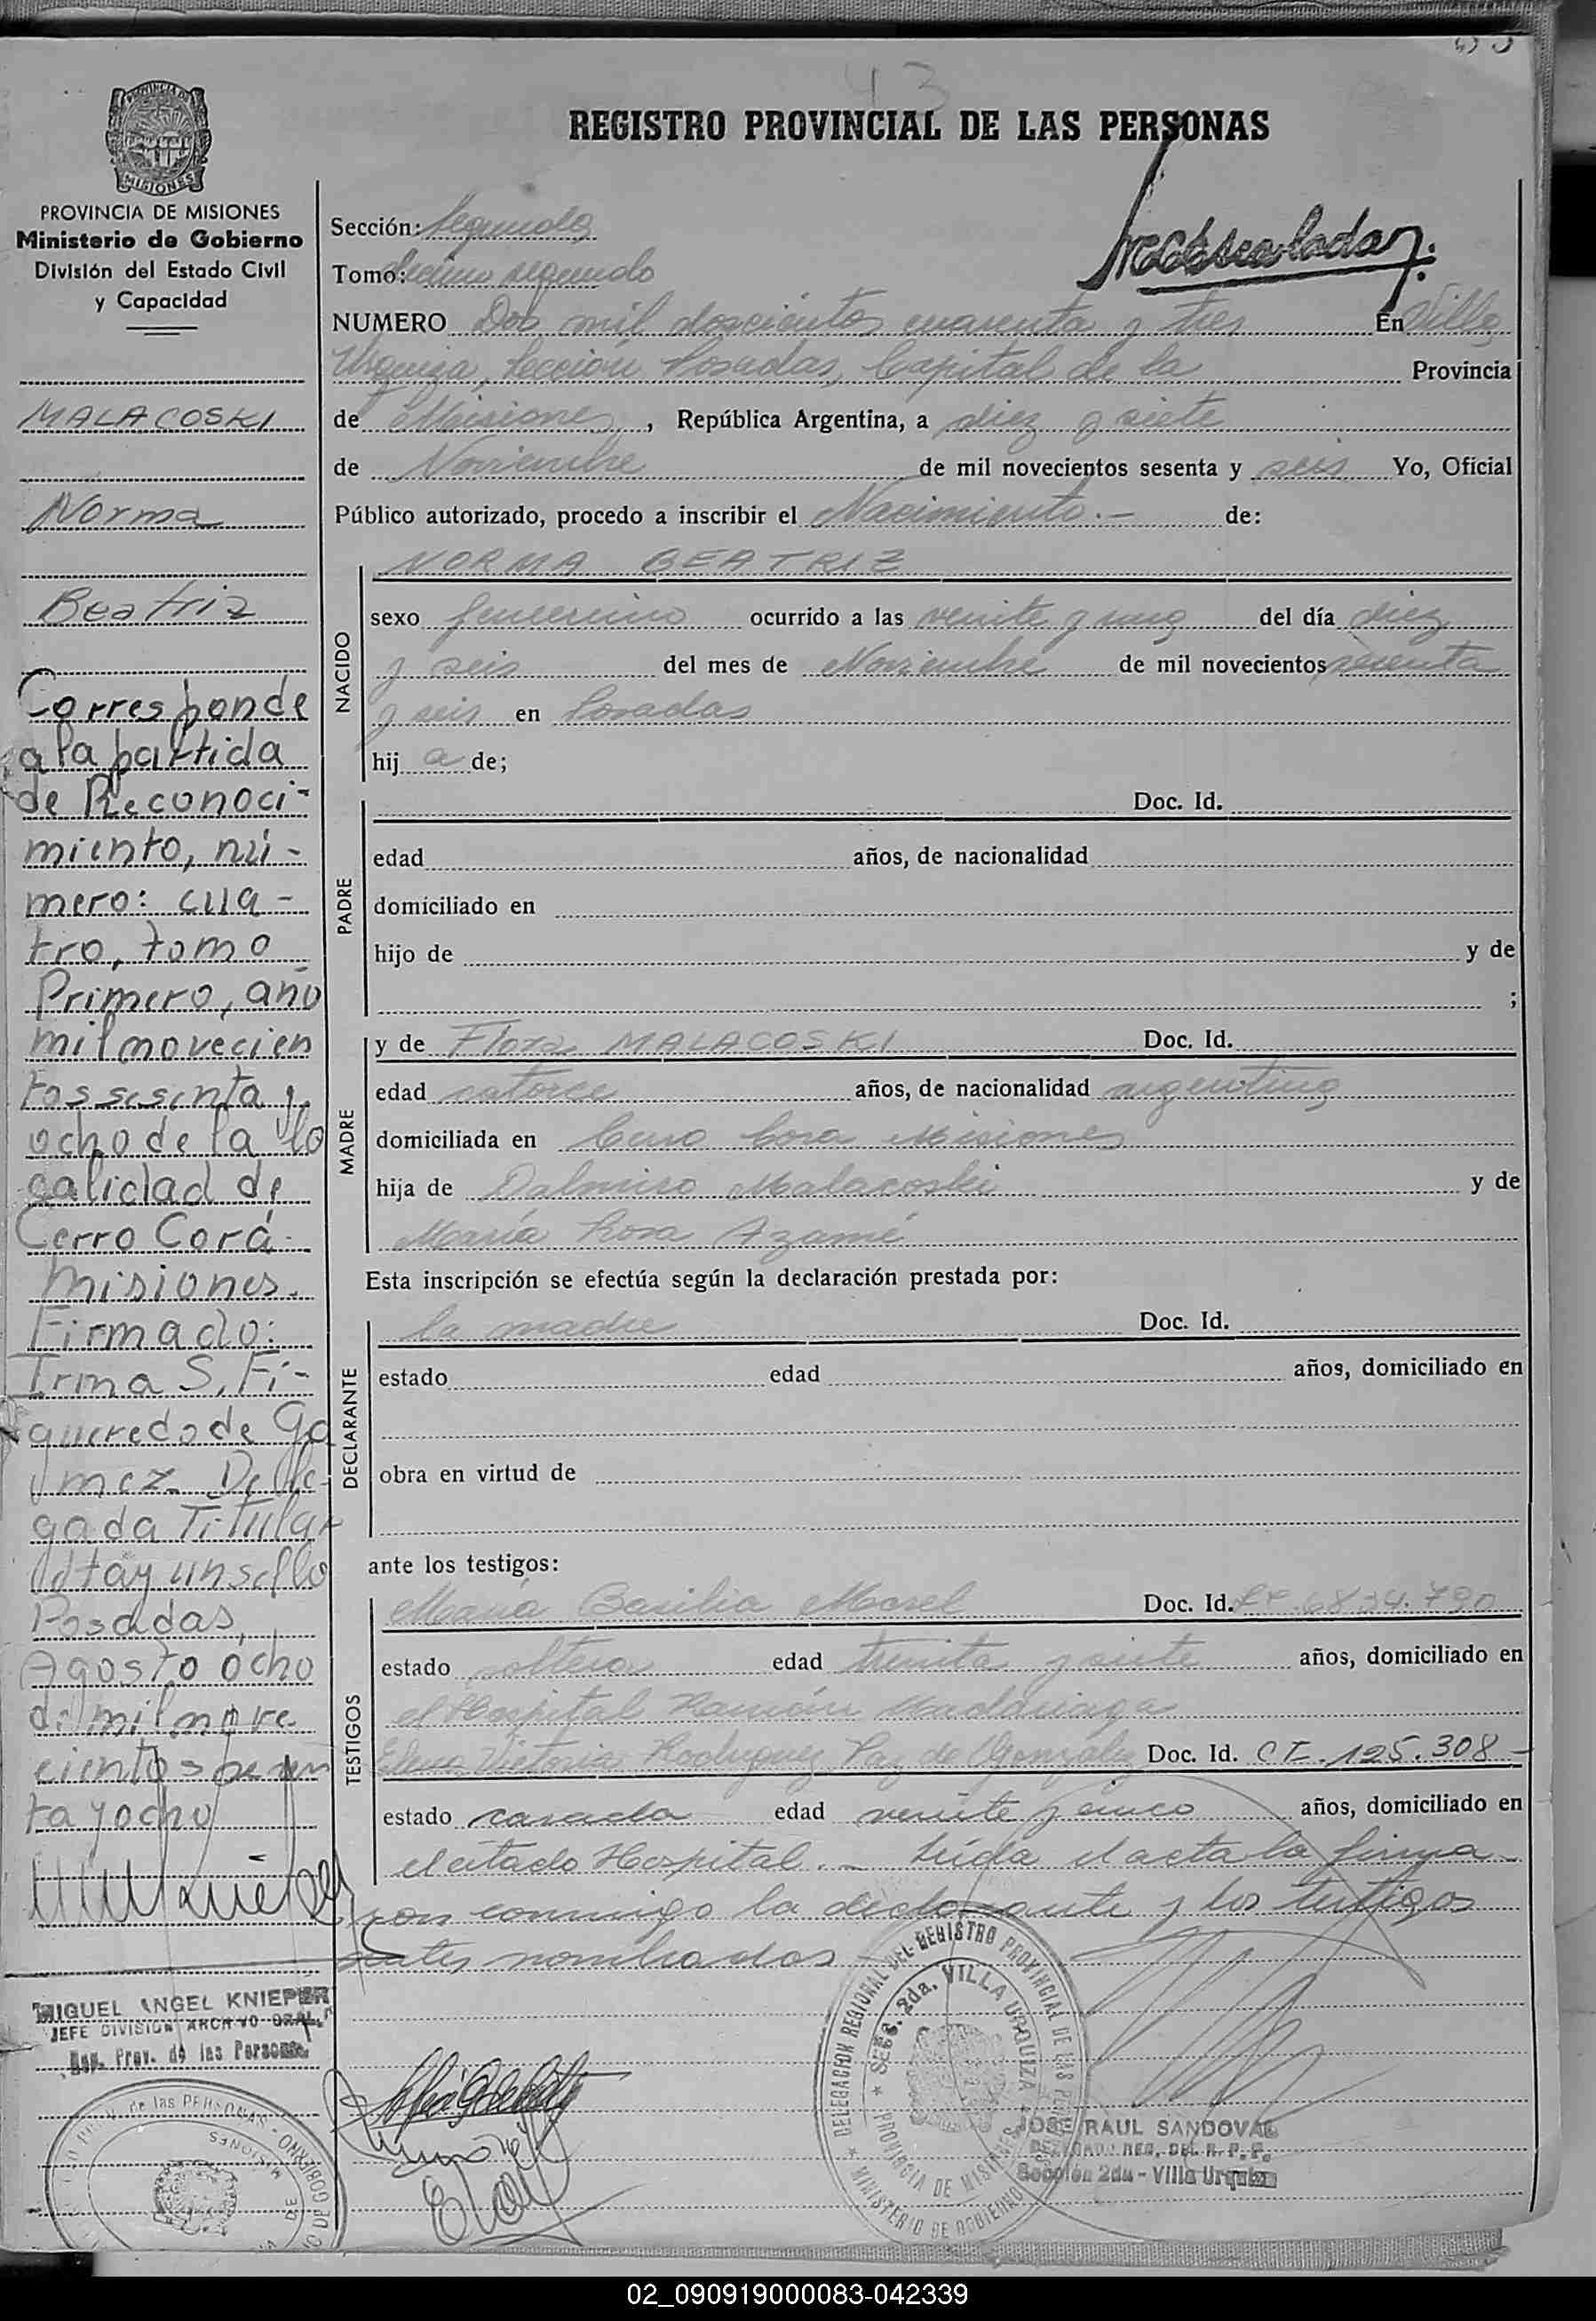 43
REGISTRO PROVINCIAL DE LAS PERSONAS
PROVINCIA DE MISIONES
Ministerio de Gobierno
División del Estado Civil
y Capacidad
MALACOSKI
Norma
Beatriz
Corresponde
a la partida
de Reconoci-
miento, nú-
mero: cua-
tro, tomo
Primero, año
mil novecien
tos sesenta y
ocho de la lo
calidad de
Cerro Corá
Misiones.
Firmado:
Irma S. Fi-
gueredo de Go
mez. Dele-
gada Titular
Hay un sello
Posadas,
Agosto ocho
de mil nove
cientos sesen
ta y ocho
MIGUEL ANGEL KNIEPER
JEFE DIVISION ARCHIVO GRAL.
Reg. Prov. de las Personas
Sección: Segunda
Tomo: décimo segundo
NUMERO Dos mil doscientos cuarenta y tres En Villa
Urquiza, Sección Posadas, Capital de la Provincia
de Misiones, República Argentina, a diez y siete
de Noviembre de mil novecientos sesenta y seis Yo, Oficial
Público autorizado, procedo a inscribir el Nacimiento.- de:
NACIDO
NORMA BEATRIZ
sexo femenino ocurrido a las veinte y una del día diez
y seis del mes de Noviembre de mil novecientos sesenta
y seis en Posadas
hij a de;
PADRE
Doc. Id.
edad años, de nacionalidad
domiciliado en
hijo de y de
;
MADRE
y de Flora MALACOSKI Doc. Id.
edad catorce años, de nacionalidad argentina
domiciliada en Cerro Cora Misiones
hija de Dalmiro Malacoski y de
María Rosa Azamé
Esta inscripción se efectúa según la declaración prestada por:
DECLARANTE
la madre Doc. Id.
estado edad años, domiciliado en
obra en virtud de
ante los testigos:
TESTIGOS
María Basilia Morel Doc. Id. 6834.790
estado soltera edad treinta y siete años, domiciliado en
el Hospital Ramón Madariaga
Elena Victoria Rodriguez Paz de González Doc. Id. CI. 125.308-
estado casada edad veinte y cinco años, domiciliado en
el citado Hospital.- Leída el acta la firma
ron conmigo la declarante y los testigos
antes nombrados
DELEGACION REGIONAL DEL REGISTRO PROVINCIAL DE LAS PERSONAS
SECC. 2da. VILLA URQUIZA
PROVINCIA DE MISIONES
MINISTERIO DE GOBIERNO
JOSE RAUL SANDOVAL
DELEGADO REG. DEL R. P. P.
Sección 2da - Villa Urquiza
02_090919000083-042339